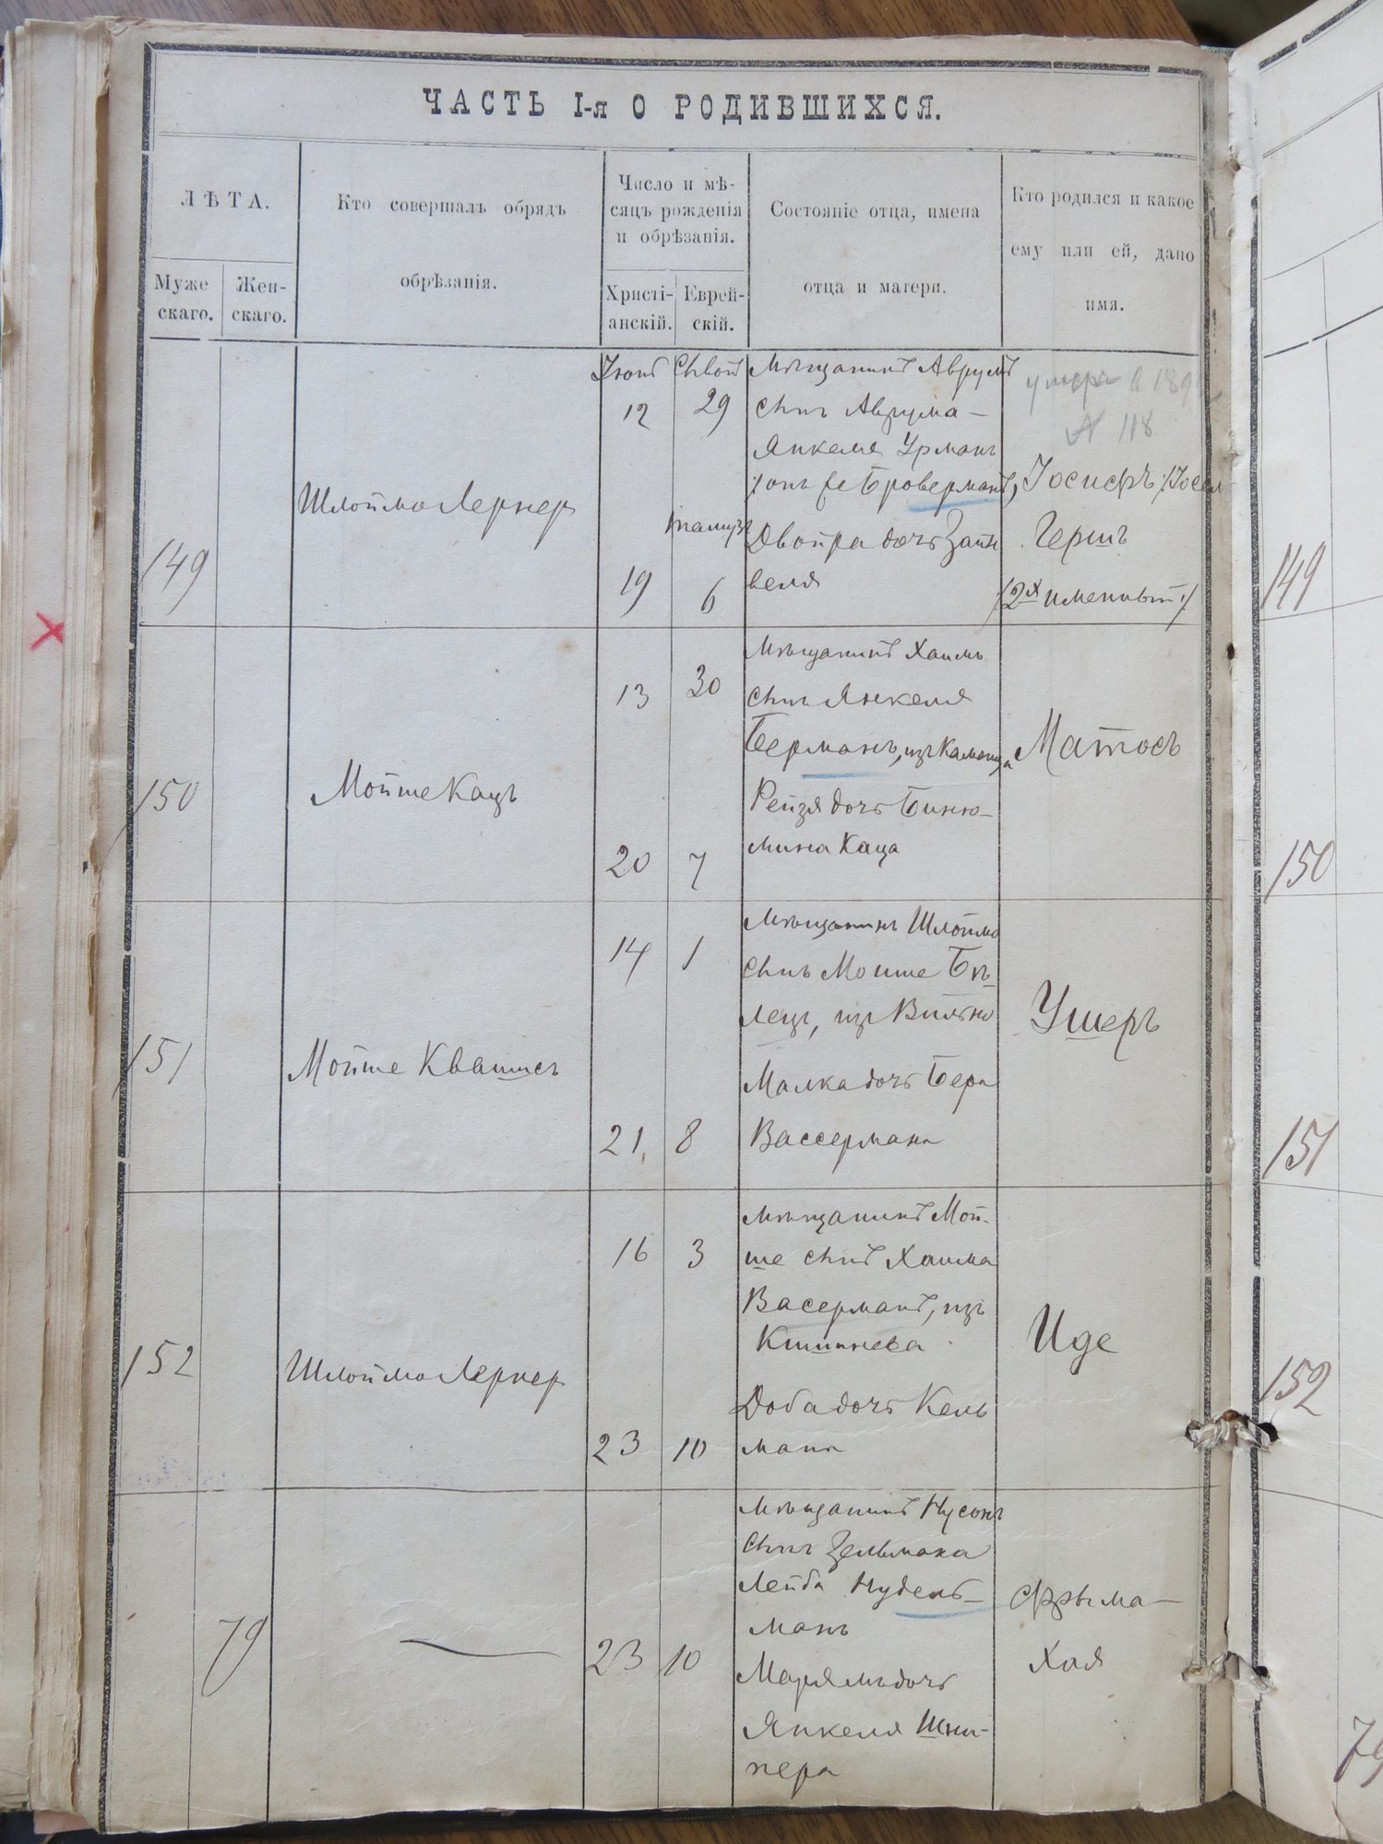 ЧАСТЬ I-я О РОДИВШИХСЯ.
ЛѢТА.
Муже
скаго.
Жен-
скаго.
Кто совершалъ обрядъ
обрѣзанія.
Число и мѣ-
сяцъ рожденія
и обрѣзанія.
Христі-
анскій.
Еврей-
скій.
Состояніе отца, имена
отца и матери.
Кто родился и какое
ему или ей, дано
имя.
149
Шлоймо Лернер
Іюнь
12
19
29
тамузъ
6
Мѣщанинъ Аврумъ
сынъ Аврума-
Янкеля Урманъ
Броверманъ,
Двойра дочь Зайн
веля
умеръ в 189
№ 118
Іосифъ
Гершъ
/2х именный/
149
150
Мойше Кацъ
13
30
20
7
Мѣщанинъ Хаимъ
сынъ Янкеля
Берманъ, изъ Каменца
Рейзя дочь Биню-
мина Каца
Матосъ
150
151
Мойше Квашисъ
14
1
21
8
Мѣщанинъ Шлоймо
сынъ Мойше Бѣ-
лецъ, изъ Вильно
Малка дочь Бера
Вассермана
Ушеръ
151
152
Шлоймо Лернер
16
3
23
10
Мѣщанинъ Мой-
ше сынъ Хаима
Васерманъ, изъ
Кишинева
Доба дочь Кель
мана
Иде
152
79
23
10
Мѣщанинъ Нусонъ
сынъ Зельмана
Лейба Нудель-
манъ
Марямъ дочь
Янкеля Шни-
пера
Фрыма-
Хая
79